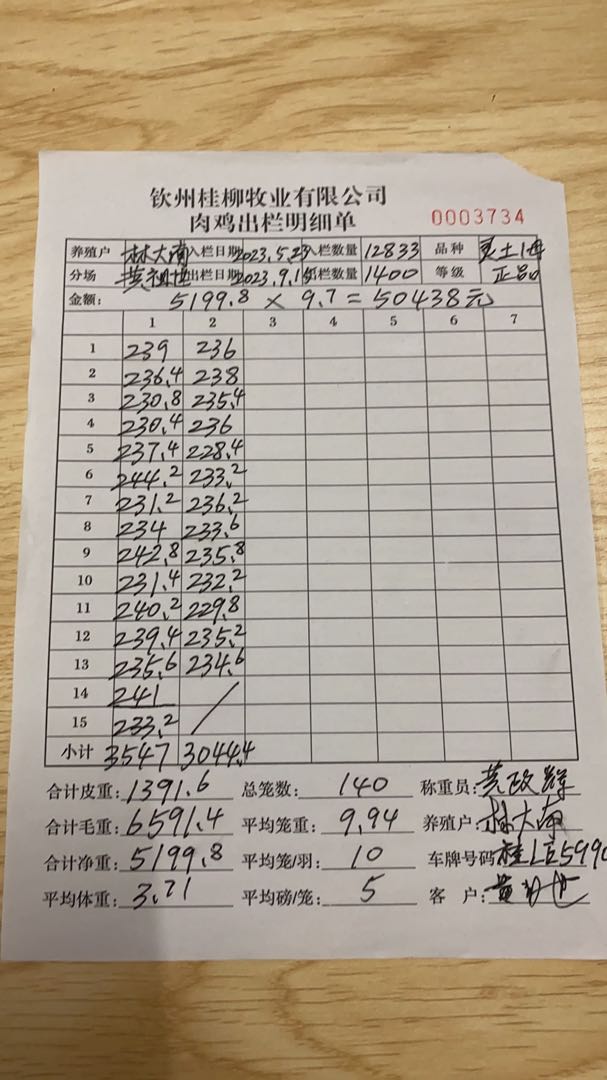 钦州桂柳牧业有限公司
肉鸡出栏明细单 0003734
养殖户 林大南 入栏日期 2023.5.23 入栏数量 12833 品种 土
分场 黄祖 出栏日期 2023.9.15 栏数量 1400 等级 正品
金额: 5199.8 × 9.7 = 50438元
1 2 3 4 5 6 7
1 239 236
2 236.4 238
3 230.8 235.4
4 230.4 236
5 237.4 228.4
6 244.2 233.2
7 231.2 236.2
8 234 233.6
9 242.8 235.8
10 231.4 232.2
11 240.2 229.8
12 239.4 235.2
13 235.6 234.6
14 241
15 233.2 /
小计 3547 3044.4
合计皮重: 1391.6 总笼数: 140 称重员: 黄政
合计毛重: 6591.4 平均笼重: 9.94 养殖户: 林大南
合计净重: 5199.8 平均笼/羽: 10 车牌号码 桂L
平均体重: 3.71 平均磅/笼: 5 客 户: 黄